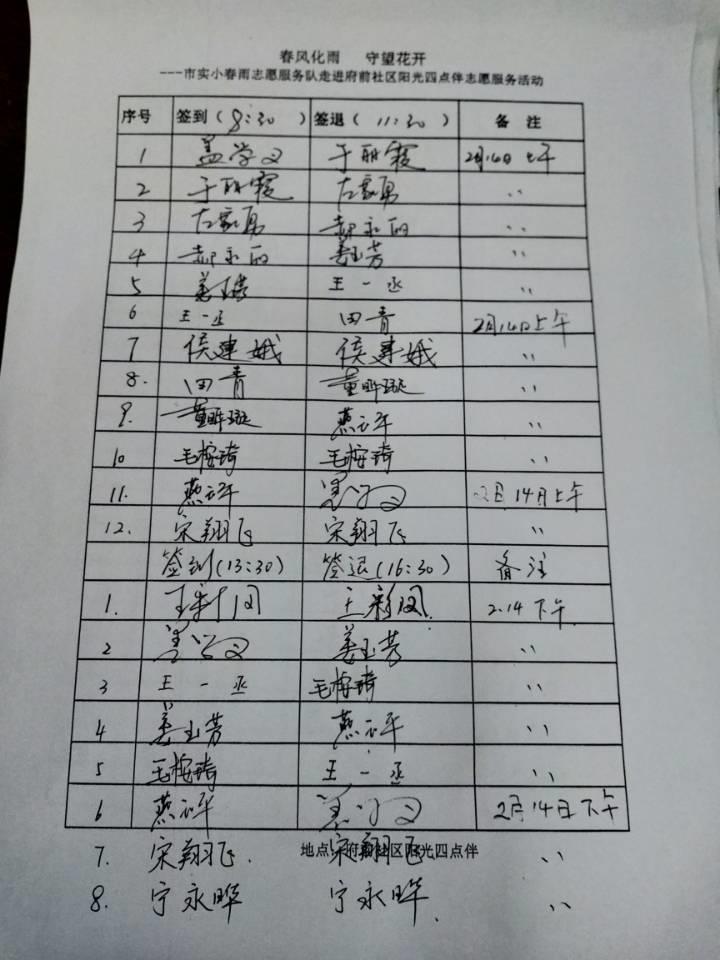 春风化雨 守望花开
---市实小春雨志愿服务队走进府前社区阳光四点伴志愿服务活动
序号 签到(8:30 ) 签退( 11:30 ) 备 注
1 于丽霞 2月14日上午
2 于丽霞 左家勇 〃
3 左家勇 郝永丽 〃
4 郝永丽 姜玉芳 〃
5 王一丞 〃
6 王一丞 田青 2月14日上午
7 侯建娥 侯建娥 〃
8. 田青 董晔璇 〃
9. 董晔璇 燕云平 〃
10 毛桉琦 毛桉琦 〃
11. 燕云平 2月14日上午
12. 宋翔飞 宋翔飞 〃
签到(13:30) 签退(16:30) 备注
1. 王彩凤 王彩凤. 2.14下午
2 姜玉芳 〃
3 王一丞 毛桉琦 〃
4 姜玉芳 燕云平 〃
5 毛桉琦 王一丞 〃
6 燕云平 2月14日下午
地点:府前社区阳光四点伴
7. 宋翔飞. 宋翔飞 〃
8. 宁永晔 宁永晔. 〃